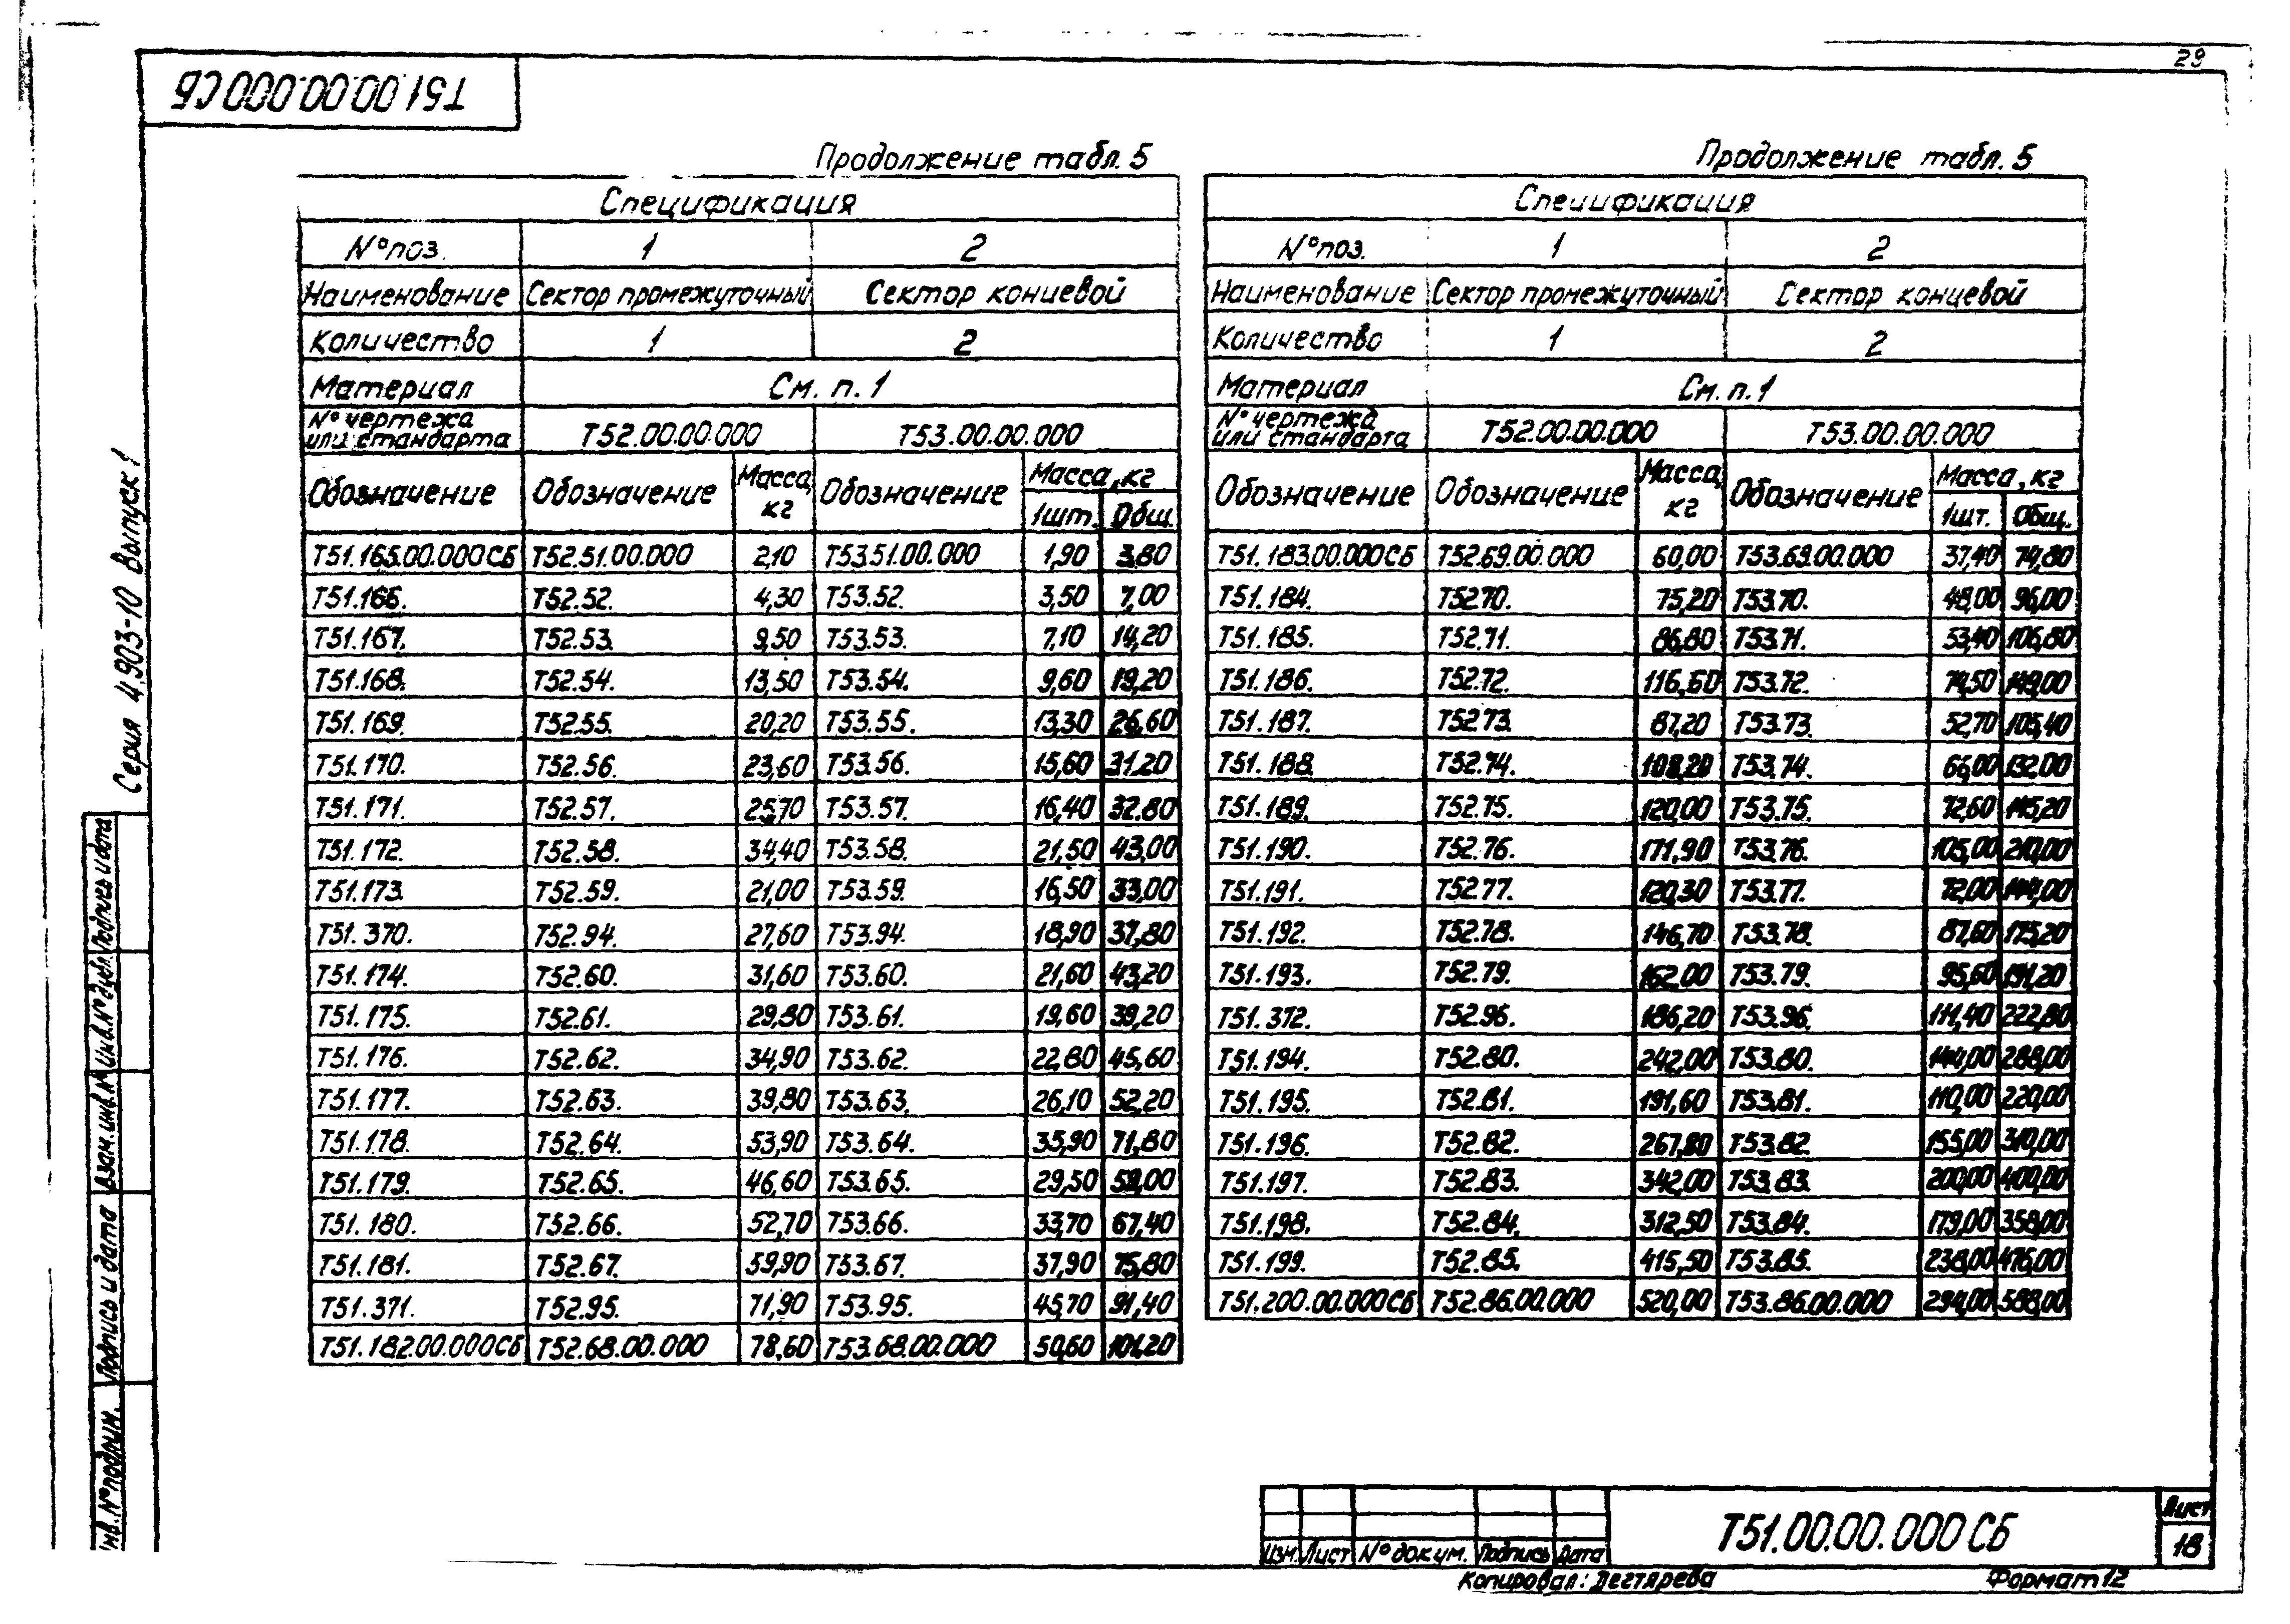 29
Т51.00.00.000СБ
Серия 4.903-10 Выпуск 1
Продолжение табл. 5
Спецификация
N° поз. 1 2
Наименование Сектор промежуточный Сектор концевой
Количество 1 2
Материал См. п. 1
N° чертежа или стандарта Т52.00.00.000 Т53.00.00.000
Обозначение Обозначение Масса, кг Обозначение Масса, кг
1шт. Общ.
Т51.165.00.000СБ Т52.51.00.000 2,10 Т53.51.00.000 1,90 3,80
Т51.166. Т52.52. 4,30 Т53.52. 3,50 7,00
Т51.167. Т52.53. 9,50 Т53.53. 7,10 14,20
Т51.168. Т52.54. 13,50 Т53.54. 9,60 19,20
Т51.169. Т52.55. 20,20 Т53.55. 13,30 26,60
Т51.170. Т52.56. 23,60 Т53.56. 15,60 31,20
Т51.171. Т52.57. 25,70 Т53.57. 16,40 32,80
Т51.172. Т52.58. 34,40 Т53.58. 21,50 43,00
Т51.173. Т52.59. 21,00 Т53.59. 16,50 33,00
Т51.370. Т52.94. 27,60 Т53.94. 18,90 37,80
Т51.174. Т52.60. 31,60 Т53.60. 21,60 43,20
Т51.175. Т52.61. 29,80 Т53.61. 19,60 39,20
Т51.176. Т52.62. 34,90 Т53.62. 22,80 45,60
Т51.177. Т52.63. 39,80 Т53.63. 26,10 52,20
Т51.178. Т52.64. 53,90 Т53.64. 35,90 71,80
Т51.179. Т52.65. 46,60 Т53.65. 29,50 59,00
Т51.180. Т52.66. 52,70 Т53.66. 33,70 67,40
Т51.181. Т52.67. 59,90 Т53.67. 37,90 75,80
Т51.371. Т52.95. 71,90 Т53.95. 45,70 91,40
Т51.182.00.000СБ Т52.68.00.000 78,60 Т53.68.00.000 50,60 101,20
Продолжение табл. 5
Спецификация
N° поз. 1 2
Наименование Сектор промежуточный Сектор концевой
Количество 1 2
Материал См. п. 1
N° чертежа или стандарта Т52.00.00.000 Т53.00.00.000
Обозначение Обозначение Масса, кг Обозначение Масса, кг
1шт. Общ.
Т51.183.00.000СБ Т52.69.00.000 60,00 Т53.69.00.000 37,40 74,80
Т51.184. Т52.70. 75,20 Т53.70. 48,00 96,00
Т51.185. Т52.71. 86,80 Т53.71. 53,40 106,80
Т51.186. Т52.72. 116,60 Т53.72. 74,50 149,00
Т51.187. Т52.73. 87,20 Т53.73. 52,70 105,40
Т51.188. Т52.74. 108,20 Т53.74. 66,00 132,00
Т51.189. Т52.75. 120,00 Т53.75. 72,60 145,20
Т51.190. Т52.76. 171,90 Т53.76. 105,00 210,00
Т51.191. Т52.77. 120,30 Т53.77. 72,00 144,00
Т51.192. Т52.78. 146,70 Т53.78. 87,60 175,20
Т51.193. Т52.79. 162,00 Т53.79. 95,60 191,20
Т51.372. Т52.96. 186,20 Т53.96. 111,40 222,80
Т51.194. Т52.80. 242,00 Т53.80. 144,00 288,00
Т51.195. Т52.81. 191,60 Т53.81. 110,00 220,00
Т51.196. Т52.82. 267,80 Т53.82. 155,00 310,00
Т51.197. Т52.83. 342,00 Т53.83. 200,00 400,00
Т51.198. Т52.84. 312,50 Т53.84. 179,00 358,00
Т51.199. Т52.85. 415,50 Т53.85. 238,00 476,00
Т51.200.00.000СБ Т52.86.00.000 520,00 Т53.86.00.000 294,00 588,00
Инв. N° подлин. Подпись и дата Взам. инв. N° Инв. N° дубл. Подпись и дата
Изм. Лист N° докум. Подпись Дата
Т51.00.00.000СБ
Лист
18
Копировал: Дегтярева Формат 12